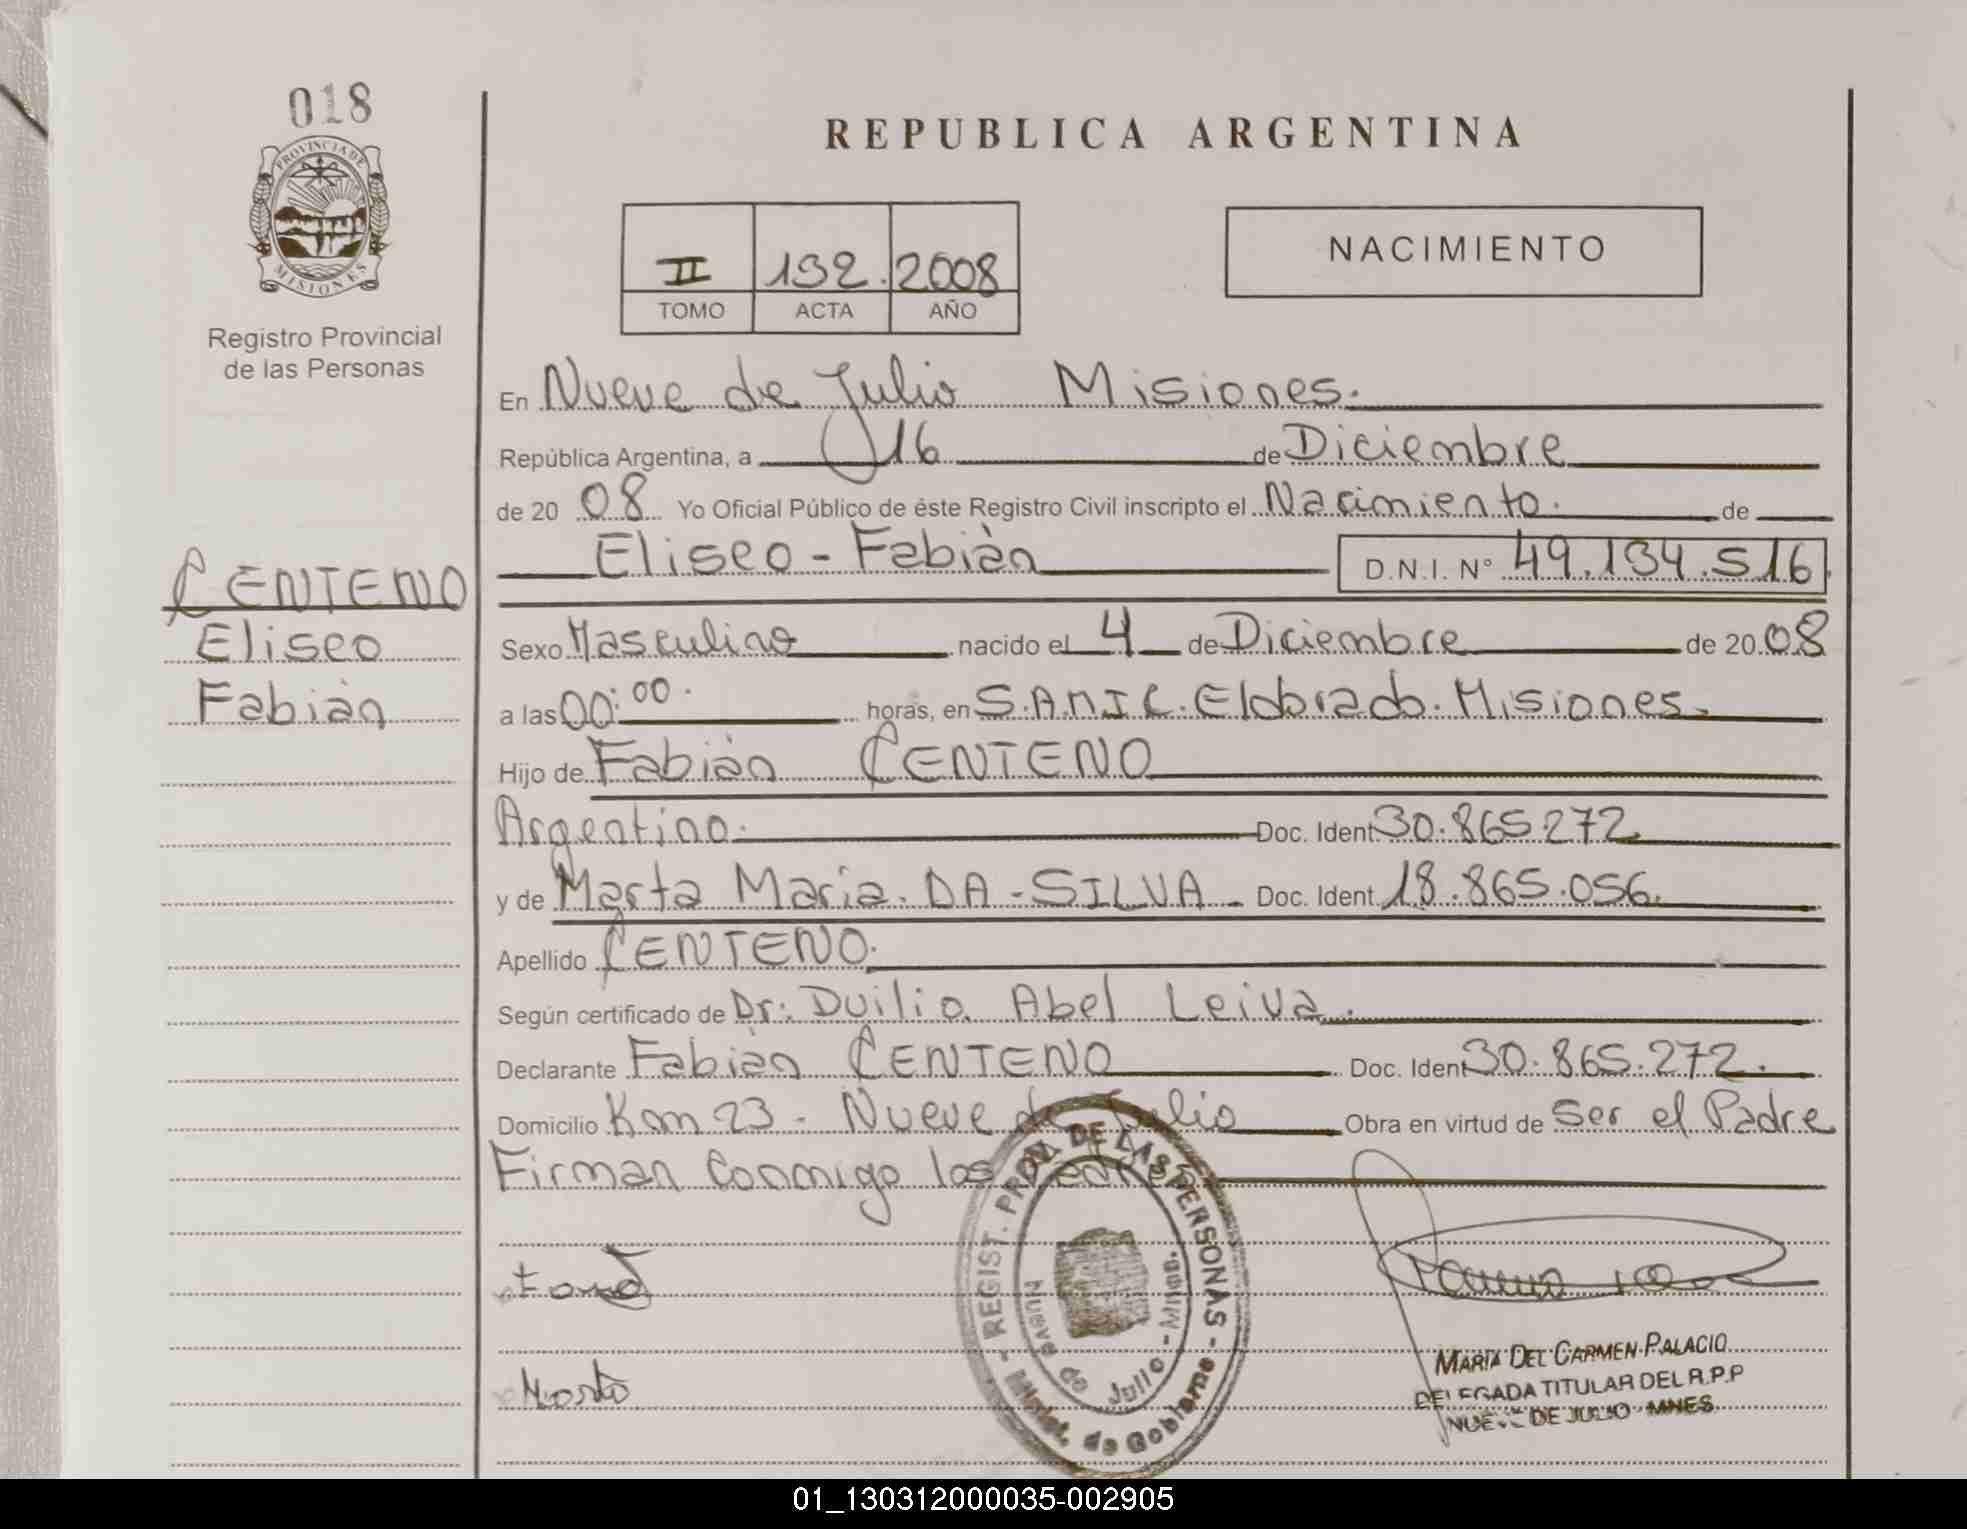 018
PROVINCIA DE
MISIONES
Registro Provincial
de las Personas
CENTENO
Eliseo
Fabiàn
REPUBLICA ARGENTINA
II 132. 2008
TOMO ACTA AÑO
NACIMIENTO
En Nueve de Julio Misiones.
República Argentina, a 16 de Diciembre
de 20 08 Yo Oficial Público de éste Registro Civil inscripto el Nacimiento. de
Eliseo - Fabiàn D.N.I. N° 49.134.516
Sexo Masculino nacido el 4 de Diciembre de 20 08
a las 00:00. horas, en S.A.M.I.C. Eldorado. Misiones.
Hijo de Fabiàn CENTENO
Argentino. Doc. Ident. 30.865.272
y de Marta Maria. DA - SILVA - Doc. Ident. 18.865.056.
Apellido CENTENO.
Según certificado de Dr: Duilio Abel Leiva.
Declarante Fabiàn CENTENO Doc. Ident 30.865.272.
Domicilio Km 23 - Nueve de Julio Obra en virtud de Ser el Padre
Firman Conmigo los
REGIST. PROV. DE LAS PERSONAS - Minist. de Gobierno -
Nueve de Julio - Mnes.
Marta
MARIA DEL CARMEN PALACIO
DELEGADA TITULAR DEL R.P.P
NUEVE DE JULIO MNES
01_130312000035-002905